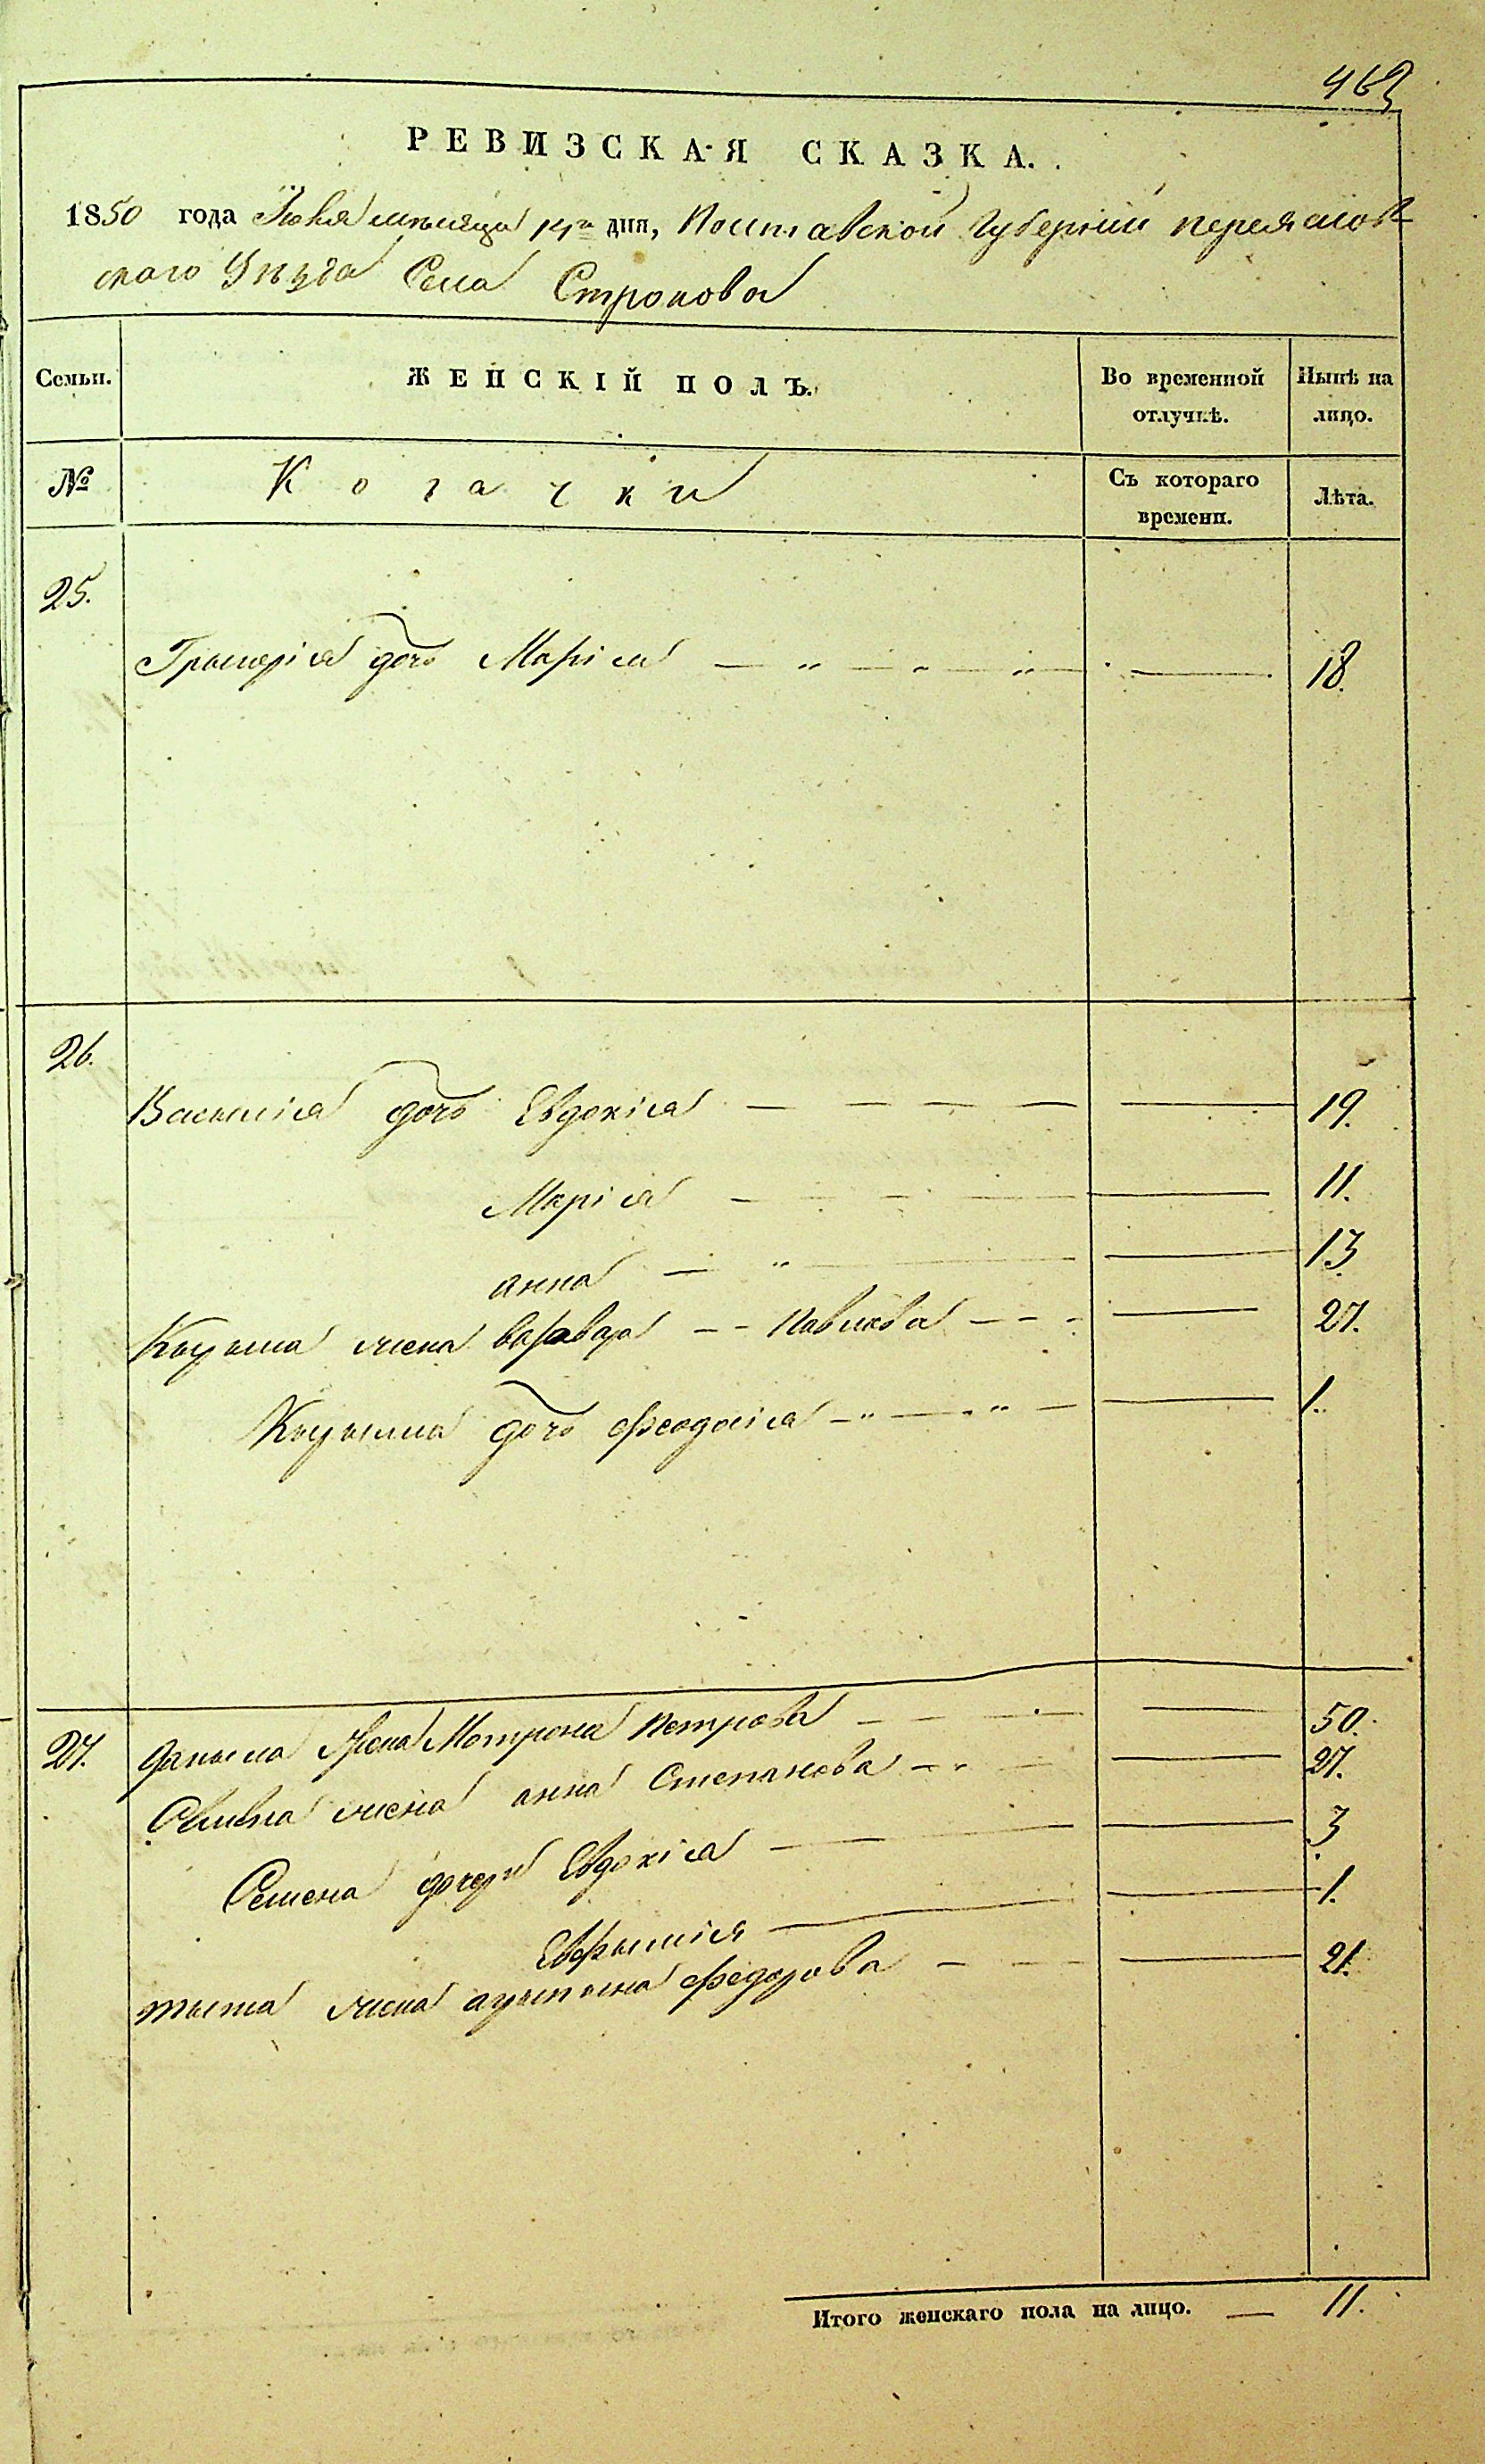 463
РЕВИЗСКАЯ СКАЗКА.
1850 года Июня месяца дня, Полтавской Губерніи переяслов
скаго Уезда Села Строкова
Семьи. ЖЕНСКІЙ ПОЛЪ. Во временной отлучкѣ. Нынѣ на лицо.
№ Козачки Съ котораго времени. Лѣта.
25.
Грыгорія дочь Марія — " — " — " — 18.
26.
Василія дочь Евдокія — — — — — 19.
Марія — — — — 11.
анна — " — — 13
Кырыла жена варвара — — Павлова — — — 27.
Кырыла дочь феодосія — " — " — — 1.
27. данила жена Мотрона Петрова — — — — 50.
жена анна Степанова — " — — 27.
Семена дочери Евдокія — — — — 3
Евфимія — — — 1.
тыта жена федорова — — — 21.
Итого женскаго пола на лицо. — 11.